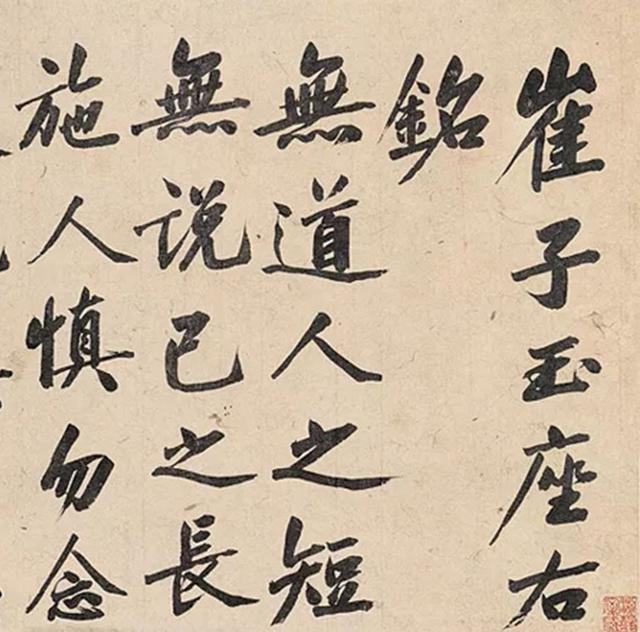 崔子玉座右
銘
無道人之短
無説己之長
施人慎勿念